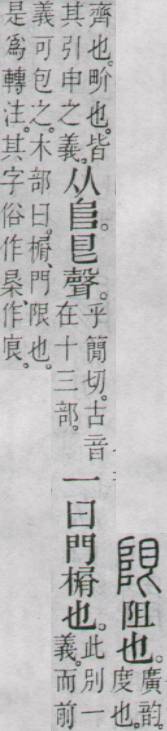 限阻也。
廣韵。
度也。
齊也。畍也。皆
其引申之義。
从𨸏。㫐聲。
乎簡切。古音
在十三部。
一曰門榍也。
此別一
義。而前
義可包之。木部曰。榍、門限也。
是爲轉注。其字俗作、作。